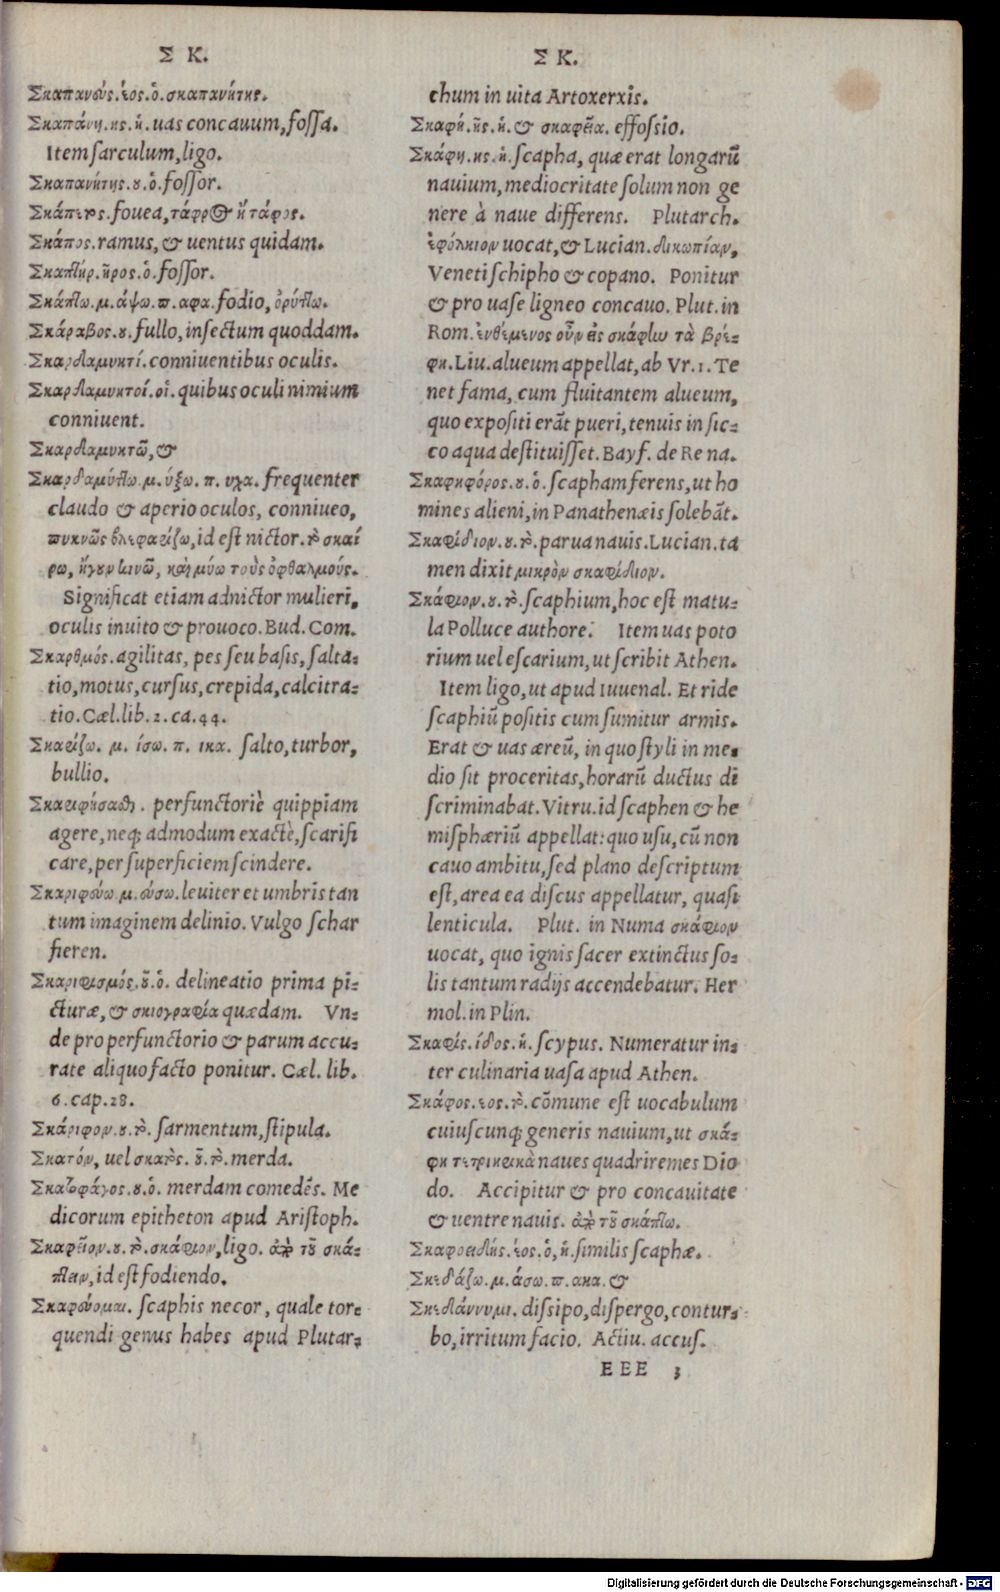 Σ Κ.
Σκαπανεύς.έος.ὁ.σκαπανήτης.
Σκαπάνη.ης.ἡ.uas concauum,fossa.
Item sarculum,ligo.
Σκαπανήτης.ου.ὁ.fossor.
Σκάπετος.fouea,τάφρος ἢ τάφος.
Σκάπος.ramus,& uentus quidam.
Σκαπτήρ.ῆρος.ὁ.fossor.
Σκάπτω.μ.άψω.π.αφα.fodio,ὀρύττω.
Σκάραβος.ου.fullo,insectum quoddam.
Σκαρδαμυκτί.conniuentibus oculis.
Σκαρδαμυκτοί.οἱ.quibus oculi nimium
conniuent.
Σκαρδαμυκτῶ,&
Σκαρδαμύττω.μ.ύξω.π.υχα.frequenter
claudo & aperio oculos, conniueo,
πυκνῶς βλεφαρίζω,id est nictor.τὸ σκαί
ρω, ἤγουν κινῶ, καὶ μύω τοὺς ὀφθαλμούς.
Significat etiam adnictor mulieri,
oculis inuito & prouoco.Bud.Com.
Σκαρθμός.agilitas, pes seu basis, salta-
tio,motus,cursus,crepida,calcitra-
tio.Cæl.lib.2.ca.44.
Σκαρίζω. μ. ίσω. π. ικα. salto,turbor,
bullio.
Σκαριφήσασθαι. perfunctoriè quippiam
agere,neq; admodum exactè,scarifi
care,per superficiem scindere.
Σκαριφεύω.μ.εύσω.leuiter et umbris tan
tum imaginem delinio. Vulgo schar
fieren.
Σκαριφισμός.οῦ.ὁ. delineatio prima pi-
cturæ,& σκιογραφία quædam. Vn-
de pro perfunctorio & parum accu-
rate aliquo facto ponitur. Cæl. lib.
6.cap.28.
Σκάριφον.ου.τὸ. sarmentum,stipula.
Σκατόν, uel σκατὸς. οῦ.τὸ.merda.
Σκατοφάγος.ου.ὁ. merdam comedēs. Me
dicorum epitheton apud Aristoph.
Σκαφεῖον.ου.τὸ.σκάφιον,ligo. ἀπὸ τοῦ σκά-
πτειν,id est fodiendo.
Σκαφεύομαι. scaphis necor, quale tor-
quendi genus habes apud Plutar-
Σ Κ.
chum in uita Artoxerxis.
Σκαφή.ῆς.ἡ.& σκαφεῖα. effossio.
Σκάφη.ης.ἡ.scapha, quæ erat longarū
nauium,mediocritate solum non ge
nere à naue differens. Plutarch.
ἐφόλκιον uocat,& Lucian.δικωπίαν,
Veneti schipho & copano. Ponitur
& pro uase ligneo concauo. Plut.in
Rom.ἐνθέμενος οὖν εἰς σκάφην τὰ βρέ-
φη.Liu.alueum appellat,ab Vr.1.Te
net fama, cum fluitantem alueum,
quo expositi erāt pueri,tenuis in sic-
co aqua destituisset.Bayf. de Re na.
Σκαφηφόρος.ου.ὁ.scapham ferens,ut ho
mines alieni,in Panathenæis solebāt.
Σκαφίδιον.ου.τὸ.parua nauis.Lucian.ta
men dixit μικρὸν σκαφίδιον.
Σκάφιον.ου.τὸ.scaphium,hoc est matu-
la Polluce authore. Item uas poto
rium uel escarium,ut scribit Athen.
Item ligo,ut apud Iuuenal. Et ride
scaphiū positis cum sumitur armis.
Erat & uas æreū, in quo styli in me-
dio sit proceritas,horarū ductus di
scriminabat.Vitru.id scaphen & he
misphæriū appellat:quo usu,cū non
cauo ambitu,sed plano descriptum
est,area ea discus appellatur, quasi
lenticula. Plut. in Numa σκάφιον
uocat, quo ignis sacer extinctus so-
lis tantum radijs accendebatur. Her
mol.in Plin.
Σκαφίς.ίδος.ἡ.scypus. Numeratur in-
ter culinaria uasa apud Athen.
Σκάφος.εος.τὸ.cōmune est uocabulum
cuiuscunq; generis nauium,ut σκά-
φη τετρικωκὰ naues quadriremes Dio
do. Accipitur & pro concauitate
& uentre nauis. ἀπὸ τοῦ σκάπτω.
Σκαφοειδής.έος.ὁ,ἡ.similis scaphæ.
Σκεδάζω.μ.άσω.π.ακα.&
Σκεδάννυμι.dissipo,dispergo,contur-
bo,irritum facio. Actiu. accus.
EEE 3
Digitalisierung gefördert durch die Deutsche Forschungsgemeinschaft - DFG